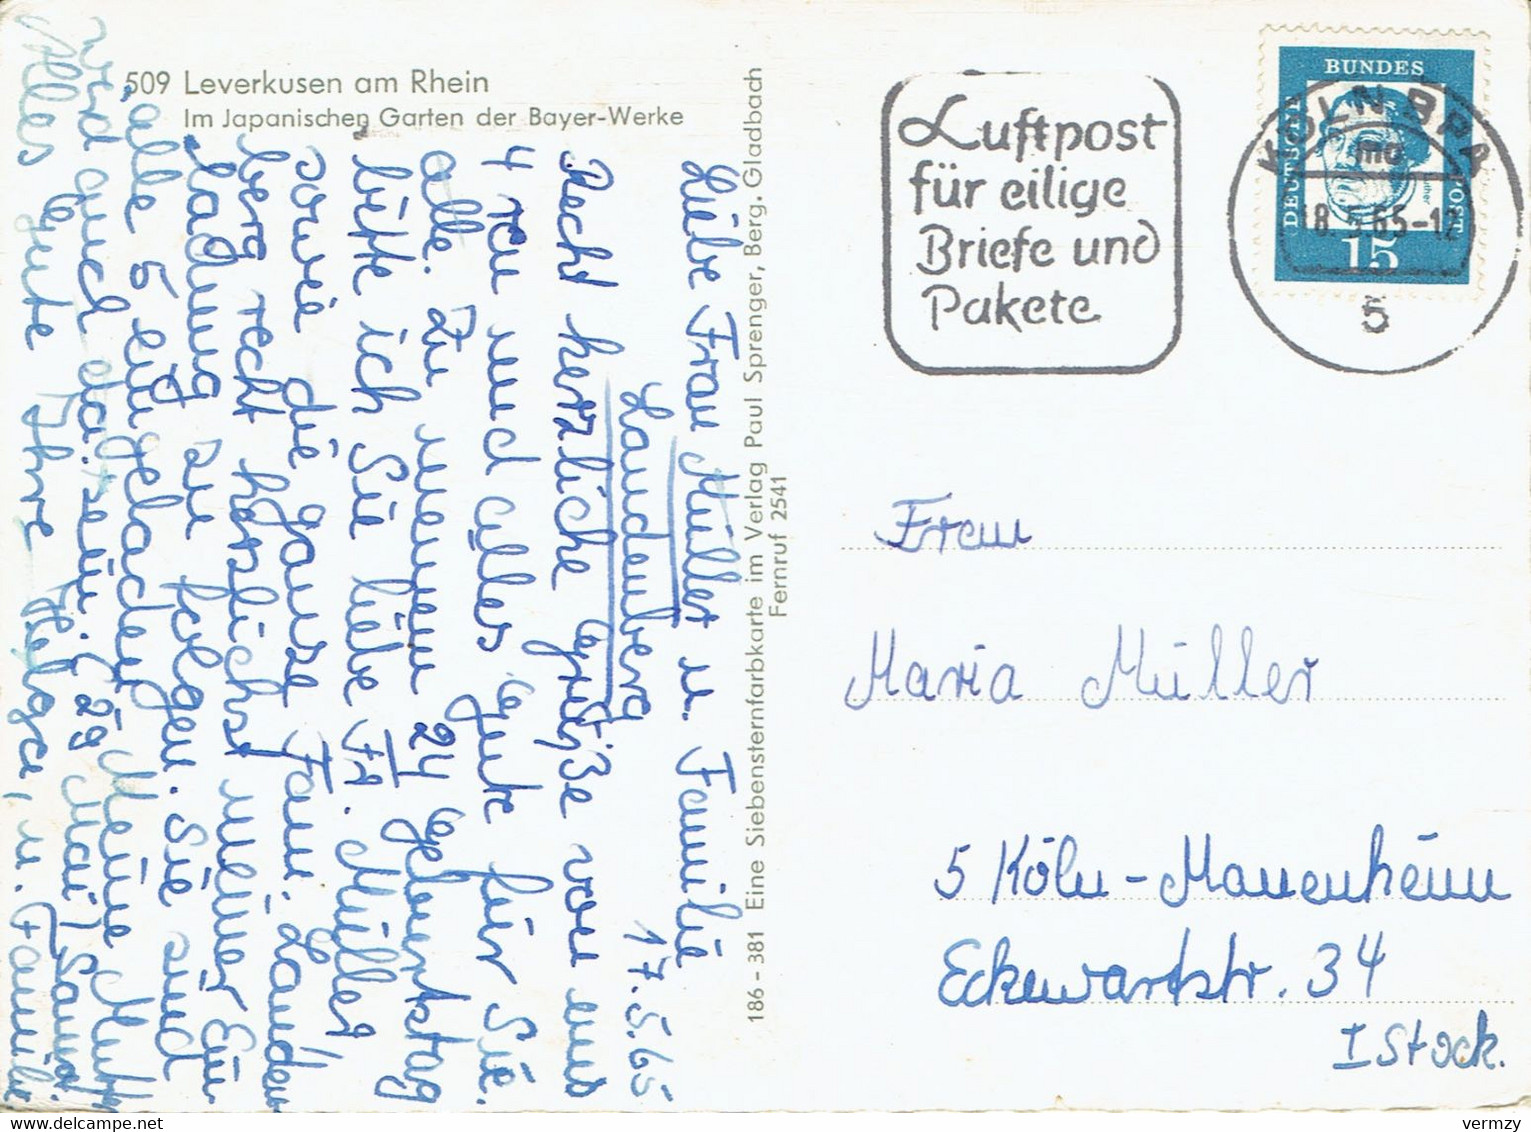 509 Leverkusen am Rhein
Im Japanischen Garten der Bayer-Werke
Liebe Frau Müller u. Familie
Laudenberg 17.5.65
Recht herzliche Grüße von uns
4 ren und alles Gute für Sie
alle. Zu meinem 24 Geburtstag
bitte ich Sie liebe Fr. Müller
sowie die ganze Fam. Lauden
berg recht herzlichst meiner Ein
ladung zu folgen. Sie sind
alle 5 eingeladen. Meine Mutti
wird auch da sein. (29 Mai) Samst.
Alles Gute Ihre Helga, u. Familie
186 - 381 Eine Siebensternfarbkarte im Verlag Paul Sprenger, Berg. Gladbach
Fernruf 2541
Luftpost
für eilige
Briefe und
Pakete
DEUTSCHE BUNDES POST
15
KÖLN BPA
mo
18.5.65-12
5
Frau
Maria Müller
5 Köln-Mauenheim
Eckewartstr. 34
I Stock.
vermzy